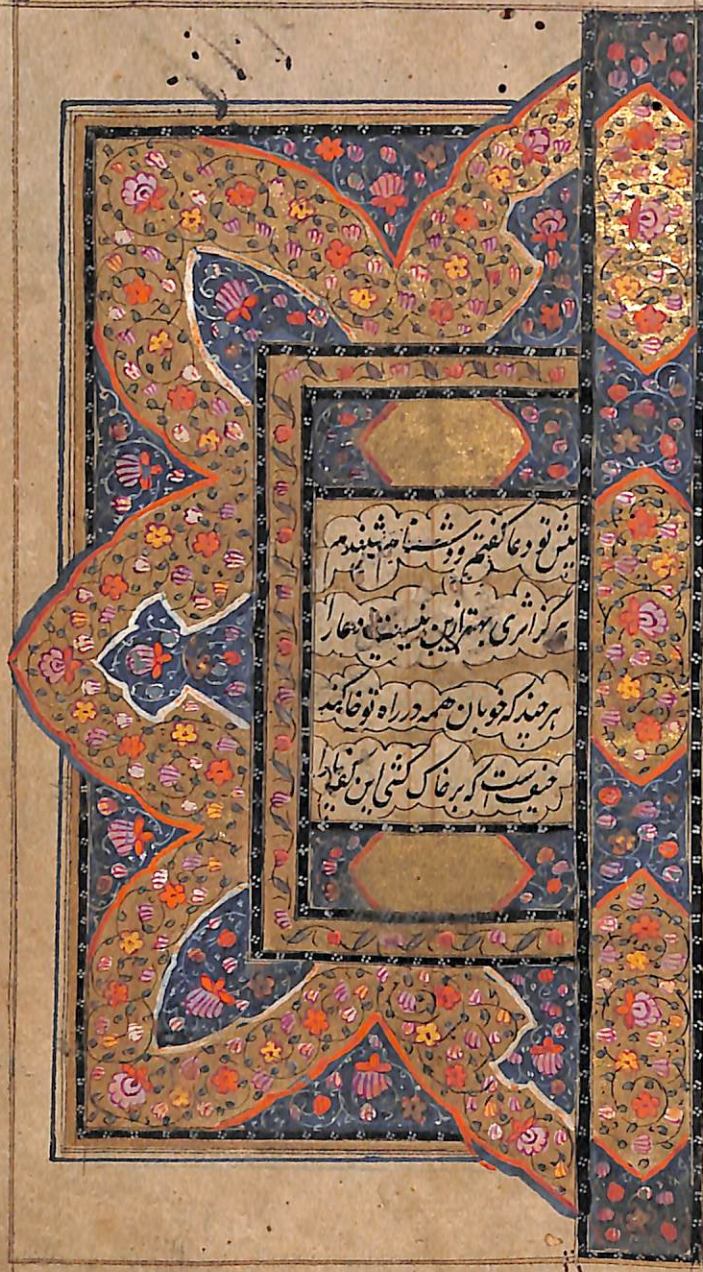 پیش تو دعا گفتم و دشنام شنیدم
هرگز اثری بهتر ازین نیست دعا را
هر چند که خوبان همه در راه تو خاکند
حیف است که بر خاک کشی این کف پا را